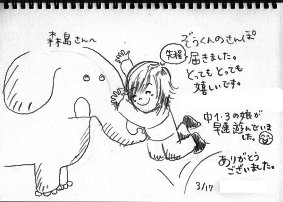 森島さんへ
ぞうくんのさんぽ
先程
届きました。
とっても とっても
嬉しいです。
中1・3の娘が
早速遊んでいま
した。
ありがとう
ございました。
3/17